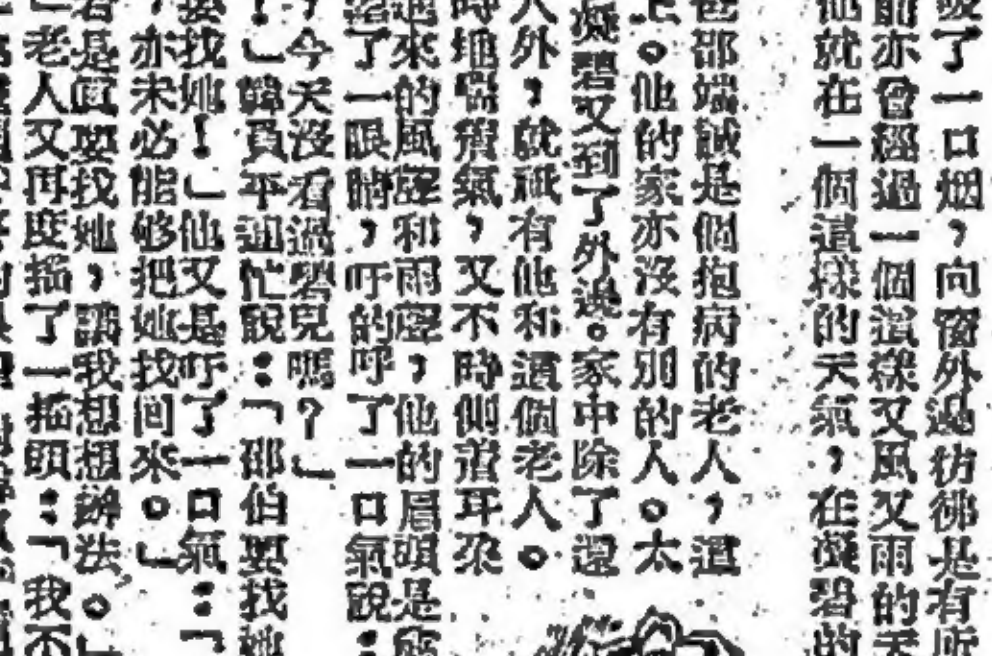 吸了一口烟，向窗外邊彷彿是有所
前亦曾經過一個這樣又風又雨的天
他就在一個這樣的天氣，在凝碧的
爸邵端誠是個抱病的老人，這
上。他的家亦沒有別的人。太
凝碧又到了外邊。家中除了還
人外，就祇有他和這個老人。
時地喘氣，又不時側着耳朶
過來的風聲和雨聲，他的眉頭是
了一眼睛，吁的呼了一口氣說：
？今天沒看過碧兒嗎？」
！」韓員平連忙說：「邵伯要找她
要找她！」他又是吁了一口氣：「
，亦未必能够把她找回來。」
若是眞要找她，讓我想想辦法。」
」老人又再度搖了一搖頭：「我不